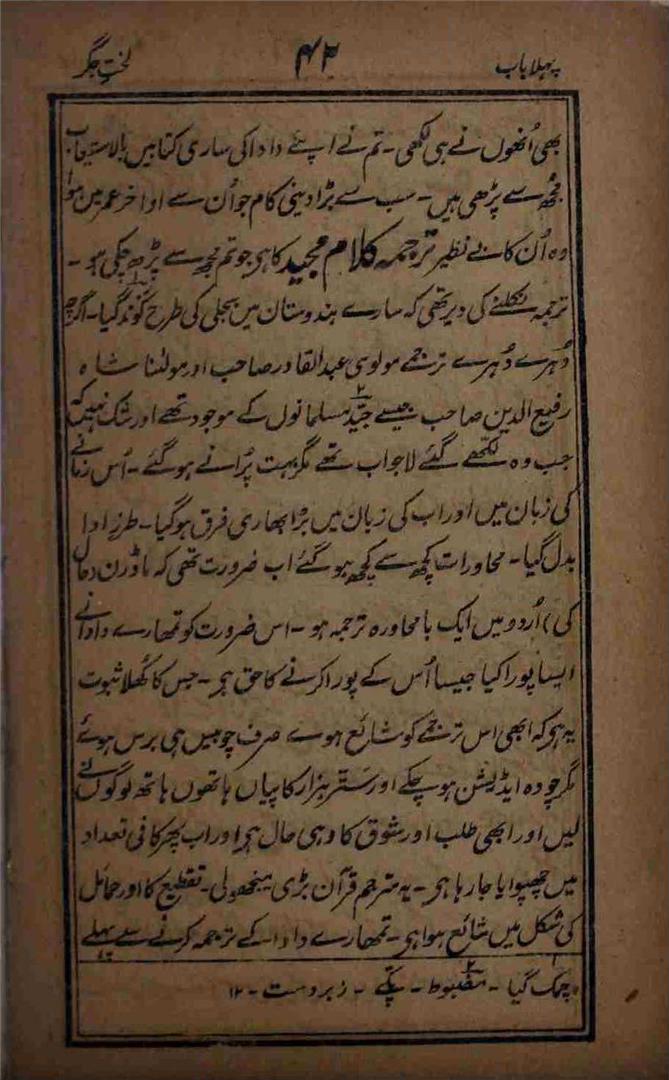 پہلا باب ۴۲ لختِ جگر
بھی اُنھوں نے ہی لکھی ۔ تم نے اپنے دادا کی ساری کتابیں بالاستیعاب
مجھ سے پڑھی ہیں ۔ سب سے بڑا دینی کام جو اُن سے اواخر عمر میں ہوا
وہ اُن کا بے نظیر ترجمہ کلام مجید کا ہی جو تم مجھ سے پڑھ چکی ہو ۔
ترجمہ نکلنے کی دیر تھی کہ سارے ہندوستان میں بجلی کی طرح کوند۱ گیا ۔ اگرچہ
دُہرے دُہرے ترجمے مولوی عبدالقادر صاحب اور مولٰنا شاہ
رفیع الدین صاحب جیسے جیّد۲ مسلمانوں کے موجود تھے اور شک نہیں کہ
جب وہ لکھے گئے لاجواب تھے مگر بہت پُرانے ہو گئے ۔ اُس زمانے
کی زبان میں اور اب کی زبان میں بڑا بھاری فرق ہو گیا ۔ طرز ادا
بدل گیا ۔ محاورات کچھ سے کچھ ہو گئے اب ضرورت تھی کہ ماڈرن (حال
کی) اُردو میں ایک بامحاورہ ترجمہ ہو ۔ اس ضرورت کو تمھارے دادا نے
ایسا پورا کیا جیسا اُس کے پورا کرنے کا حق ہی ۔ جس کا کُھلا ثبوت
یہ ہی کہ ابھی اس ترجمے کو شائع ہوے صرف چوبیس ہی برس ہوئے
مگر چودہ ایڈیشن ہو چکے اور ستر ہزار کاپیاں ہاتھوں ہاتھ لوگوں نے
لیں اور ابھی طلب اور شوق کا وہی حال ہی اور اب پھر کافی تعداد
میں چھپوایا جا رہا ہی ۔ یہ مترجم قرآن بڑی منجھولی ۔ تقطیع کا اور حمائل
کی شکل میں شائع ہوا ہی ۔ تمھارے دادا کے ترجمہ کرنے سے پہلے
۱ چمک گیا ۔ ۲ مضبوط ۔ پکے ۔ زبردست ۔ ۱۲